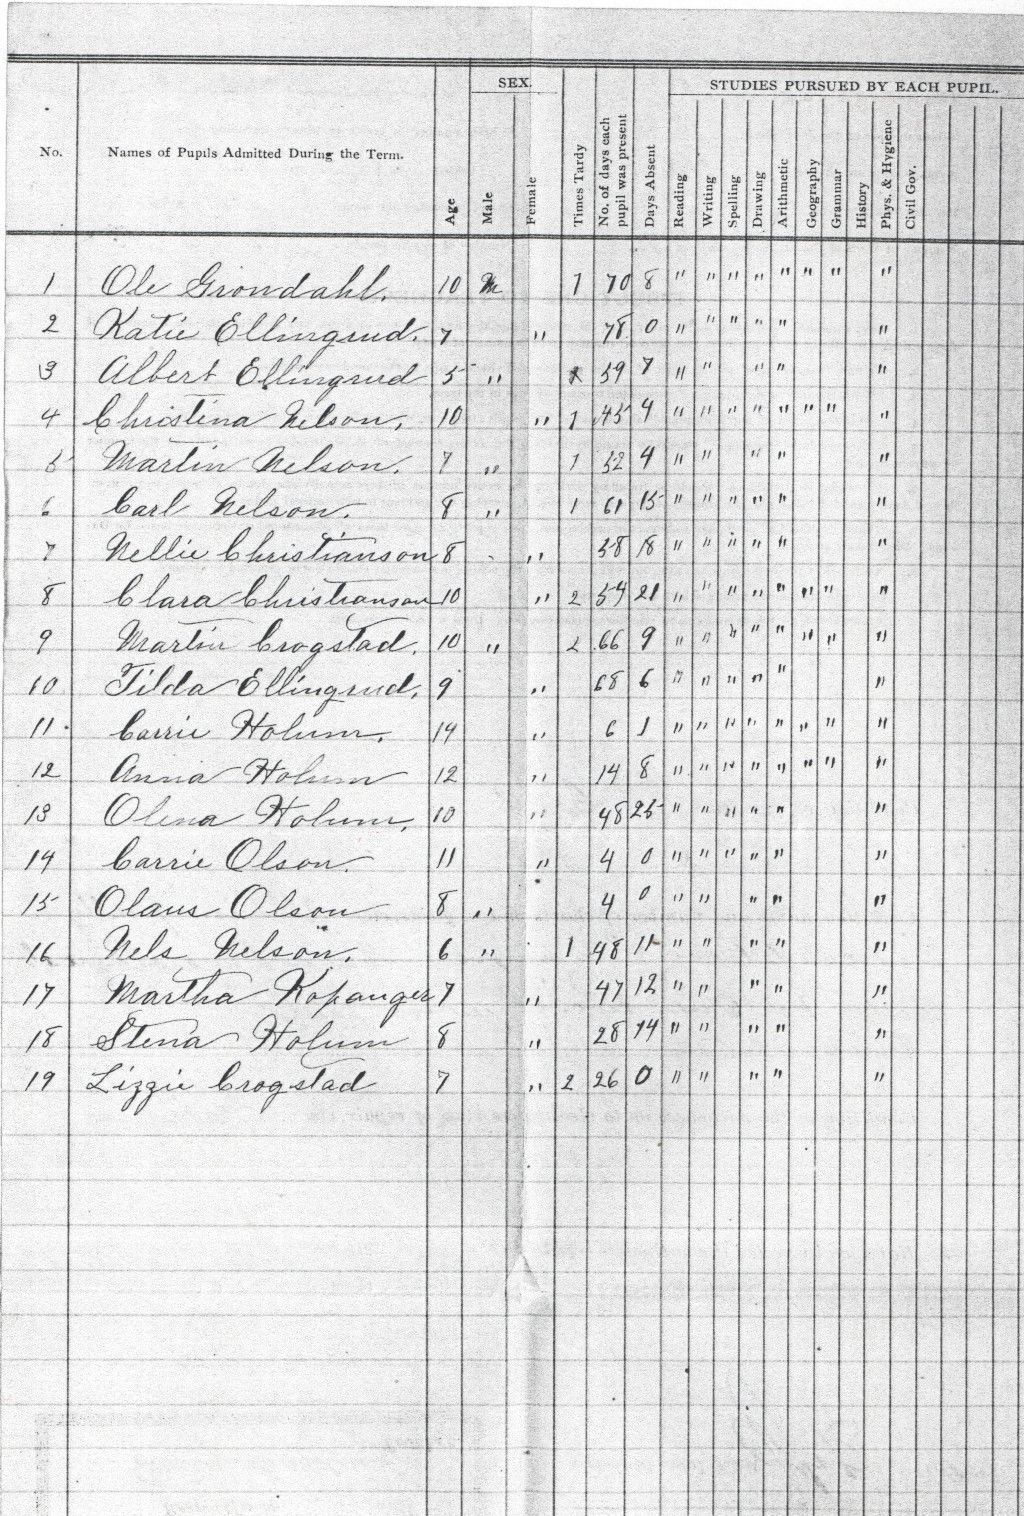 SEX.
STUDIES PURSUED BY EACH PUPIL.
No. Names of Pupils Admitted During the Term. Age Male Female Times Tardy No. of days each pupil was present Days Absent Reading Writing Spelling Drawing Arithmetic Geography Grammar History Phys. & Hygiene Civil Gov.
1 Ole Grondahl. 10 M 1 70 8 " " " " " " " "
2 Katie Ellingrud. 7 " 78 0 " " " " " "
3 Albert Ellingrud 5 " 59 7 " " " " "
4 Christina Nelson. 10 " 1 45 4 " " " " " " " "
5 Martin Nelson. 7 " 1 52 4 " " " " "
6 Carl Nelson. 8 " 1 61 15 " " " " " "
7 Nellie Christianson 8 " 58 18 " " " " " "
8 Clara Christianson 10 " 2 54 21 " " " " " " " "
9 Martin Crogstad. 10 " 2 66 9 " " " " " " " "
10 Tilda Ellingrud. 9 " 68 6 " " " " " "
11 Carrie Holum. 14 " 6 1 " " " " " " " "
12 Anna Holum 12 " 14 8 " " " " " " " "
13 Olena Holum. 10 " 48 25 " " " " " "
14 Carrie Olson. 11 " 4 0 " " " " " "
15 Olaus Olson 8 " 4 0 " " " " "
16 Nels Nelson. 6 " 1 48 11 " " " " "
17 Martha Kopanger 7 " 47 12 " " " " "
18 Stena Holum 8 " 28 14 " " " " "
19 Lizzie Crogstad 7 " 2 26 0 " " " " "